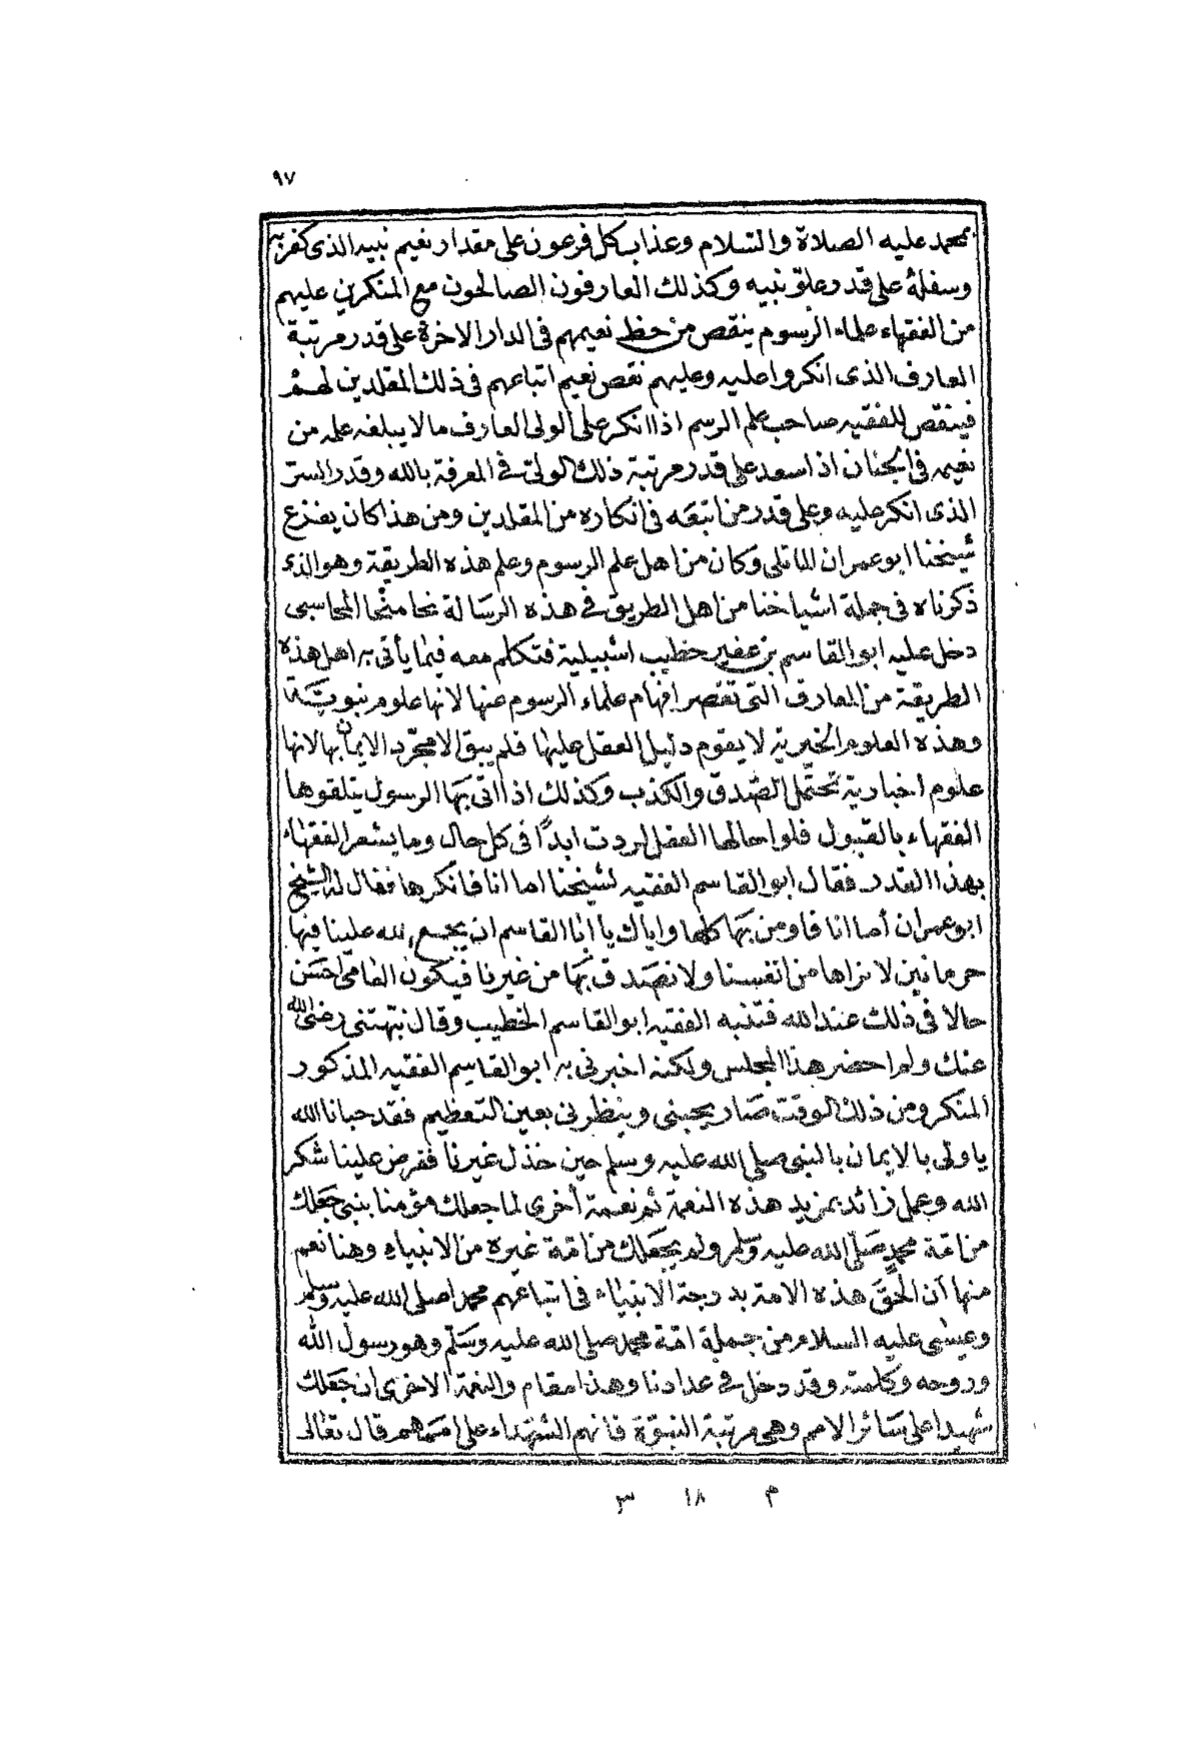 ٩٧
محمد عليه الصلاة والسلام وعذاب كل فرعون على مقدار نعيم نبيه الذى كفر به
وسفلهُ على قدر علوّ نبيه وكذلك العارفون الصالحون مع المنكرين عليهم
من الفقهاء علماء الرسوم ينقص من حظ نعيمهم فى الدار الاخرة على قدر مرتبة
العارف الذى انكروا عليه وعليهم نقص نعيم اتباعهم فى ذلك المقلدين لهم
فينقص للفقيه صاحب علم الرسم اذا انكر على الولى العارف ما لا يبلغه علمه من
نعيمه فى الجنان اذا سعد على قدر مرتبة ذلك الولىّ فى المعرفة بالله وقدر السرّ
الذى انكر عليه وعلى قدر من اتبعَه فى انكاره من المقلدين ومن هذا كان يفزع
شيخنا ابو عمران المارتلى وكان من اهل علم الرسوم وعلم هذه الطريقة وهو الذى
ذكرناه فى جملة اشياخنا من اهل الطريق فى هذه الرسالة نحا منحا المحاسبى
دخل عليه ابو القاسم بن عفير خطيب اشبيلية فتكلم معه فيما يأتى به اهل هذه
الطريقة من المعارف التى تقصر افهام علماء الرسوم عنها لانها علوم نبويّة
وهذه العلوم الخبرية لا يقوم دليل العقل عليها فلم يبق الا مجرّد الايمان بها لانها
علوم اخبارية تحتمل الصّدق والكذب وكذلك اذا اتى بها الرسول يتلقوها
الفقهاء بالقبول فلو احالها العقل لردت ابدًا فى كل حال وما يشعر الفقهاء
بهذا القدر فقال ابو القاسم الفقيه لشيخنا اما انا فانكرها فقال له الشيخ
ابو عمران أما انا فاومن بها كلها واياك يا ابا القاسم ان يجمع الله علينا فيها
حرمانين لا نراها من انفسنا ولا نصّدق بها من غيرنا فيكون العامى احسن
حالا فى ذلك عند الله فتنبه الفقيه ابو القاسم الخطيب وقال نبّهتنى رضى الله
عنك ولم احضر هذا المجلس ولكنه اخبرنى به ابو القاسم الفقيه المذكور
المنكر ومن ذلك الوقت صَار يحبنى وينظرنى بعين التعظيم فقد حبانا الله
يا ولى بالايمان بالنبى صلى الله عليه وسلم حين خذل غيرنا ففرض علينا شكر
الله وعمل زائد بمزيد هذه النعمة ثم نعمة أخرى لما جعلك مؤمنا بنبى جَعلك
من امّة محمدٍ صَلّى الله عليه وسَلم ولم يجعَلك من امّة غيره من الانبياء وهنا نعم
منها أن الحق هذه الامة بدرجة الانبياء فى اتباعهم محمد اصلى الله عليه وسلم
وعيسى عليه السلام من جملة امّة محمد صلى الله عليه وسَلّم وهو رسول الله
وروحه وكلمته وقد دخل فى عدادنا وهذا مقام والنعمة الاخرى ان جَعَلك
شهيدا على سَائر الامم وهى مرتبة النبوّة فانهم الشّهداء على امَمهم قال تعالى
م ١٨ ٣